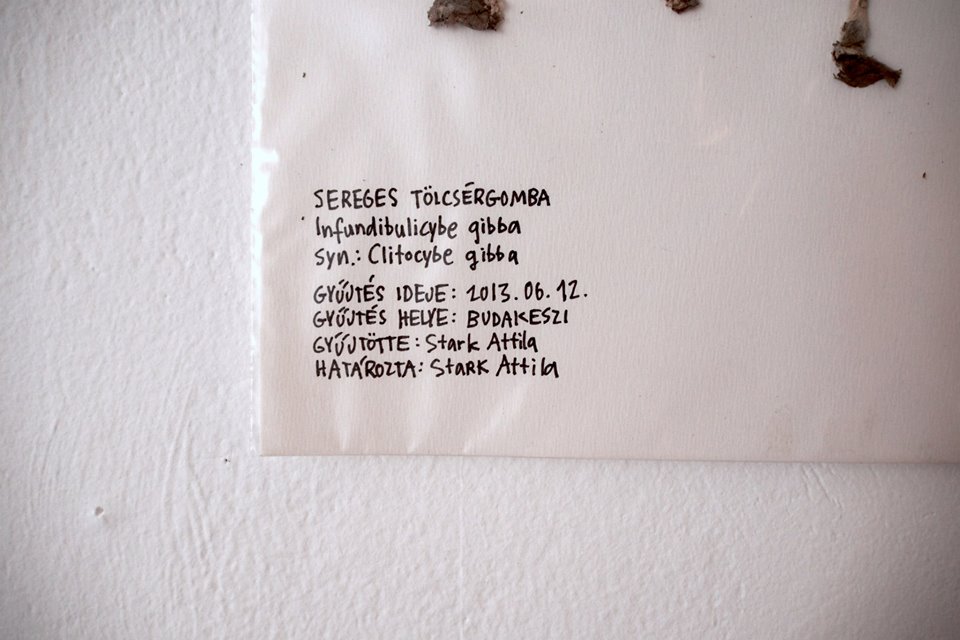 SEREGES TÖLCSÉRGOMBA
Infundibulicybe gibba
syn.: Clitocybe gibba
GYŰJTÉS IDEJE: 2013.06.12.
GYŰJTÉS HELYE: BUDAKESZI
GYŰJTÖTTE: Stark Attila
HATÁROZTA: Stark Attila